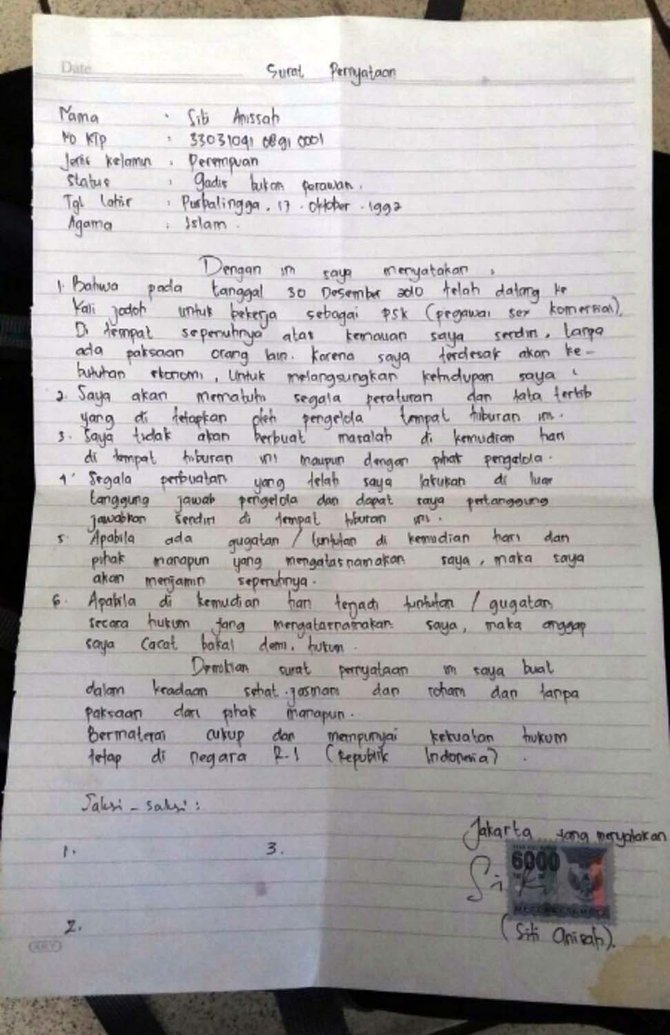 Date
Surat Pernyataan
Nama : Siti Anissah
No KTP : 33031091 0891 0001
Jenis kelamin : Perempuan
Status : gadis bukan perawan.
Tgl Lahir : Purbalingga, 17 . Oktober . 1992
Agama : Islam .
Dengan ini saya menyatakan ,
1. Bahwa pada tanggal 30 Desember 2010 telah datang ke
Kali jodoh untuk bekerja sebagai PSK (pegawai sex komersial).
Di tempat sepenuhnya atas kemauan saya sendiri, tanpa
ada paksaan orang lain. Karena saya terdesak akan ke-
butuhan ekonomi, untuk melangsungkan kehidupan saya
2. Saya akan mematuhi segala peraturan dan tata tertib
yang di tetapkan oleh pengelola tempat hiburan ini.
3. Saya tidak akan berbuat masalah di kemudian hari
di tempat hiburan ini maupun dengan pihak pengelola.
4. Segala perbuatan yang telah saya lakukan di luar
tanggung jawab pengelola dan dapat saya pertanggung
jawabkan sendiri di tempat hiburan ini.
5. Apabila ada gugatan / tuntutan di kemudian hari dan
pihak manapun yang mengatasnamakan saya, maka saya
akan menjamin sepenuhnya.
6. Apabila di kemudian hari terjadi tuntutan / gugatan
secara hukum yang mengatasnamakan saya, maka anggap
saya cacat bakal demi, hukum.
Demikian surat pernyataan ini saya buat
dalam keadaan sehat jasmani dan rohani dan tanpa
paksaan dari pihak manapun.
Bermaterai cukup dan mempunyai kekuatan hukum
tetap di negara R.I (Republik Indonesia) .
Saksi - saksi :
Jakarta yang menyatakan
1. 3.
6000
2.
(Siti Anisah).